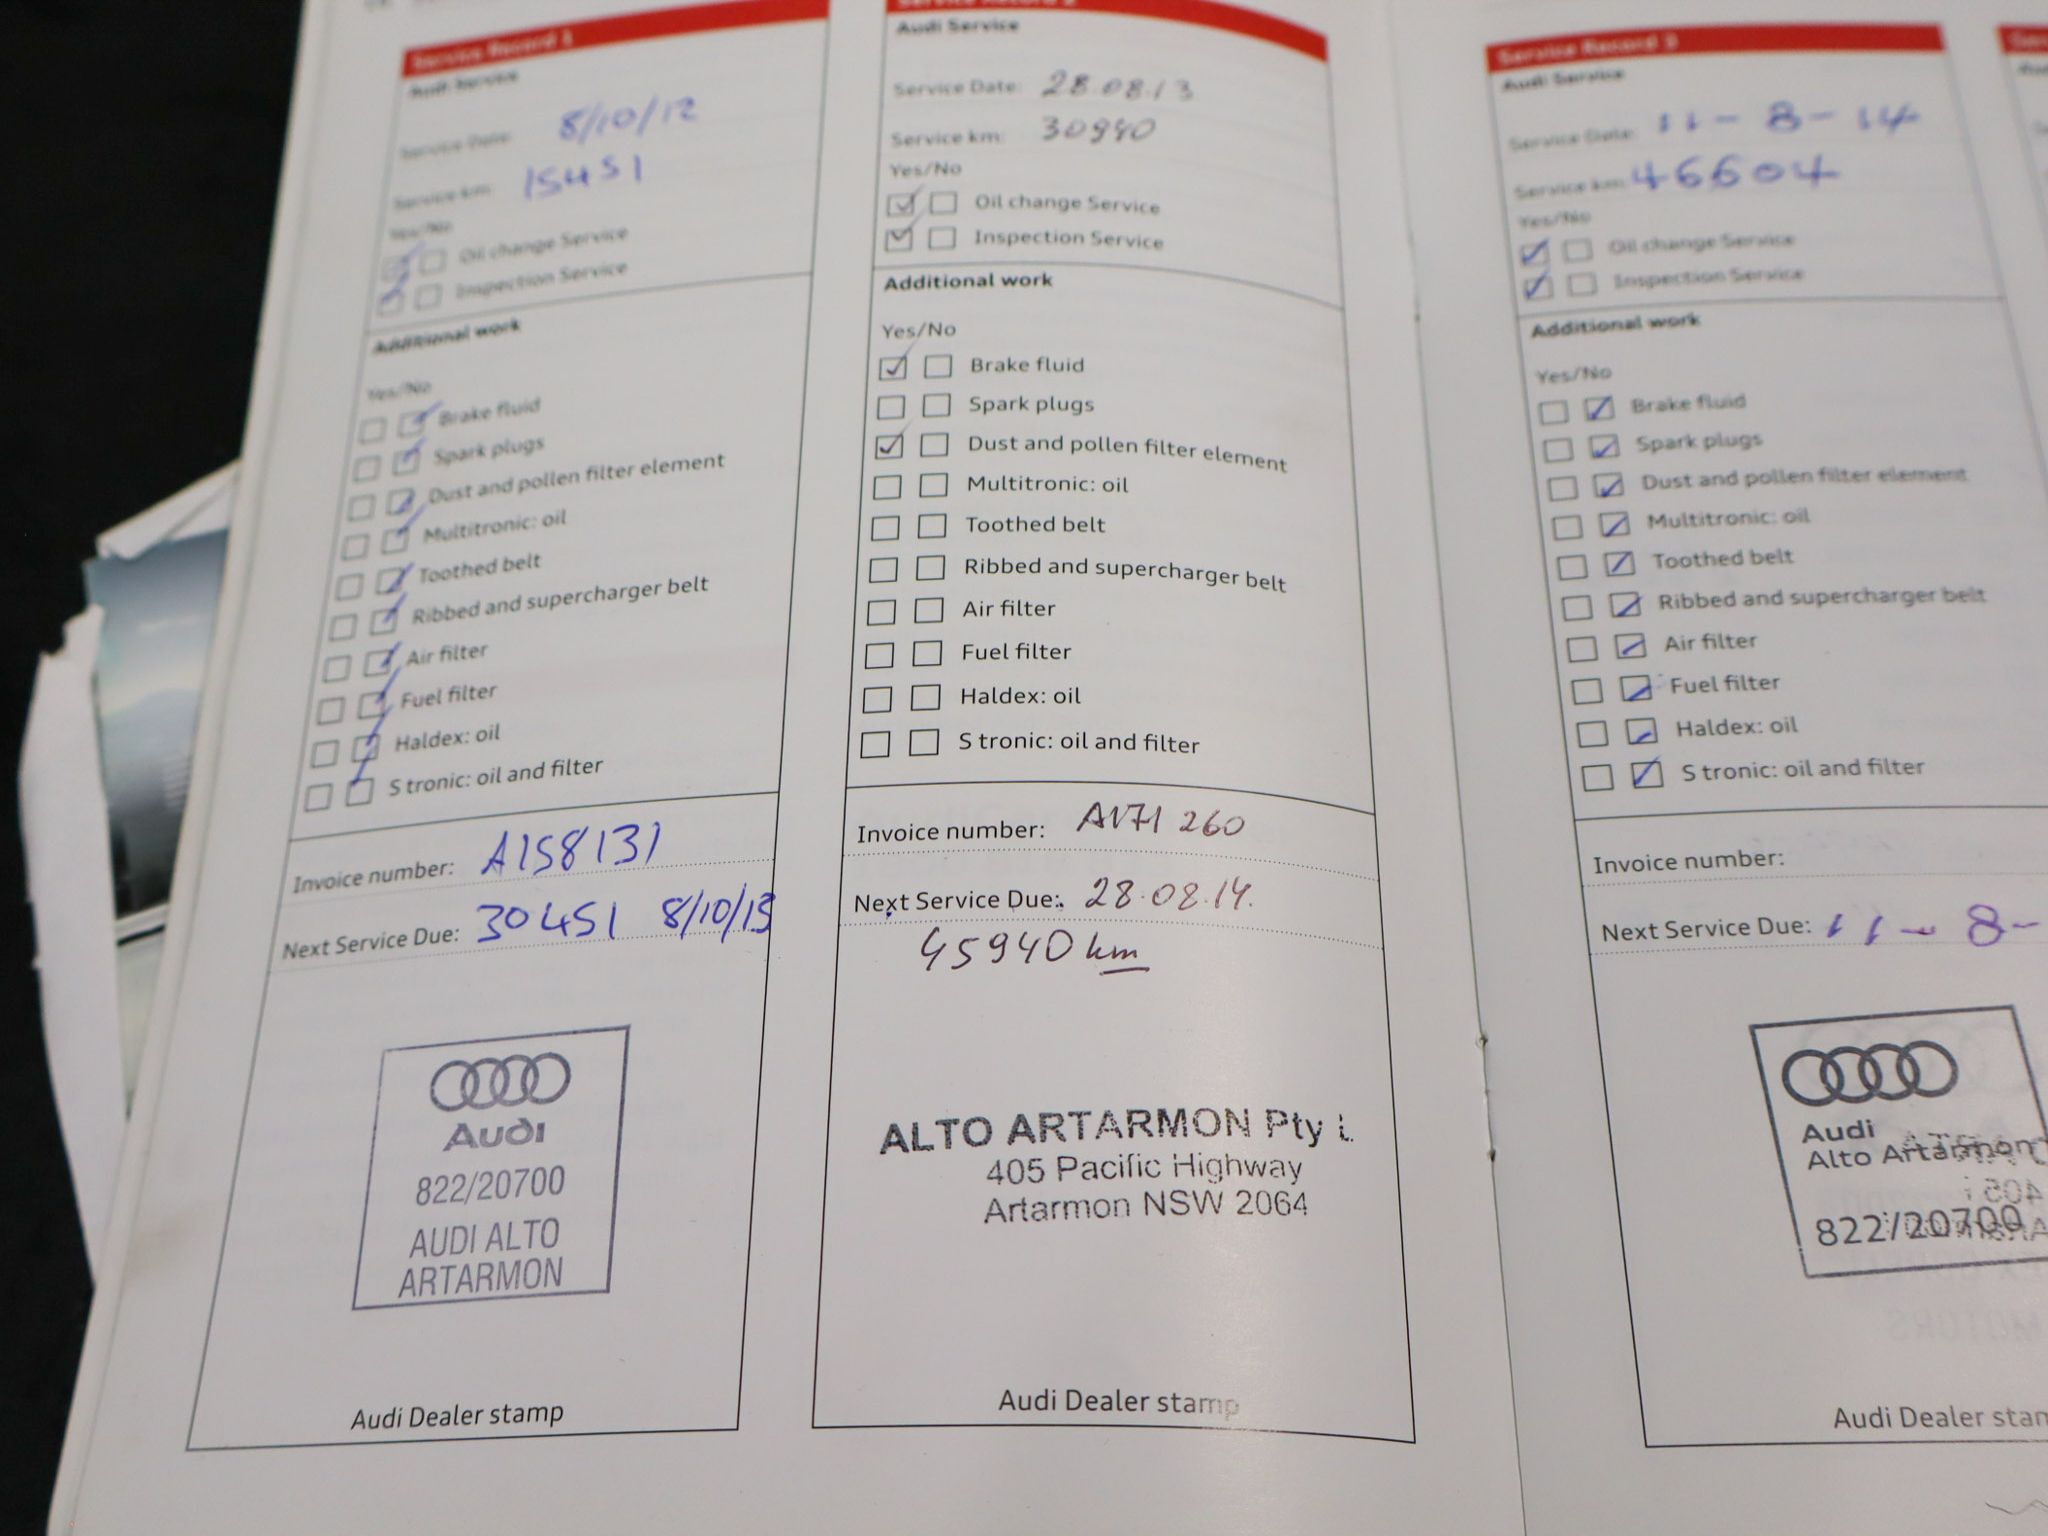 Service Record 1
Audi Service
Service Date: 8/10/12
Service km: 15451
Yes/No
Oil change Service
Inspection Service
Additional work
Yes/No
Brake fluid
Spark plugs
Dust and pollen filter element
Multitronic: oil
Toothed belt
Ribbed and supercharger belt
Air filter
Fuel filter
Haldex: oil
S tronic: oil and filter
Invoice number: A158131
Next Service Due: 30451 8/10/13
Audi
822/20700
AUDI ALTO
ARTARMON
Audi Dealer stamp
Service Record 2
Audi Service
Service Date: 28.08.13
Service km: 30940
Yes/No
Oil change Service
Inspection Service
Additional work
Yes/No
Brake fluid
Spark plugs
Dust and pollen filter element
Multitronic: oil
Toothed belt
Ribbed and supercharger belt
Air filter
Fuel filter
Haldex: oil
S tronic: oil and filter
Invoice number: A171260
Next Service Due: 28.08.14.
45940 km
ALTO ARTARMON Pty L
405 Pacific Highway
Artarmon NSW 2064
Audi Dealer stamp
Service Record 3
Audi Service
Service Date: 11-8-14
Service km: 46604
Yes/No
Oil change Service
Inspection Service
Additional work
Yes/No
Brake fluid
Spark plugs
Dust and pollen filter element
Multitronic: oil
Toothed belt
Ribbed and supercharger belt
Air filter
Fuel filter
Haldex: oil
S tronic: oil and filter
Invoice number:
Next Service Due: 11-8-
Audi
Alto Artarmon
822/20700
Audi Dealer stam